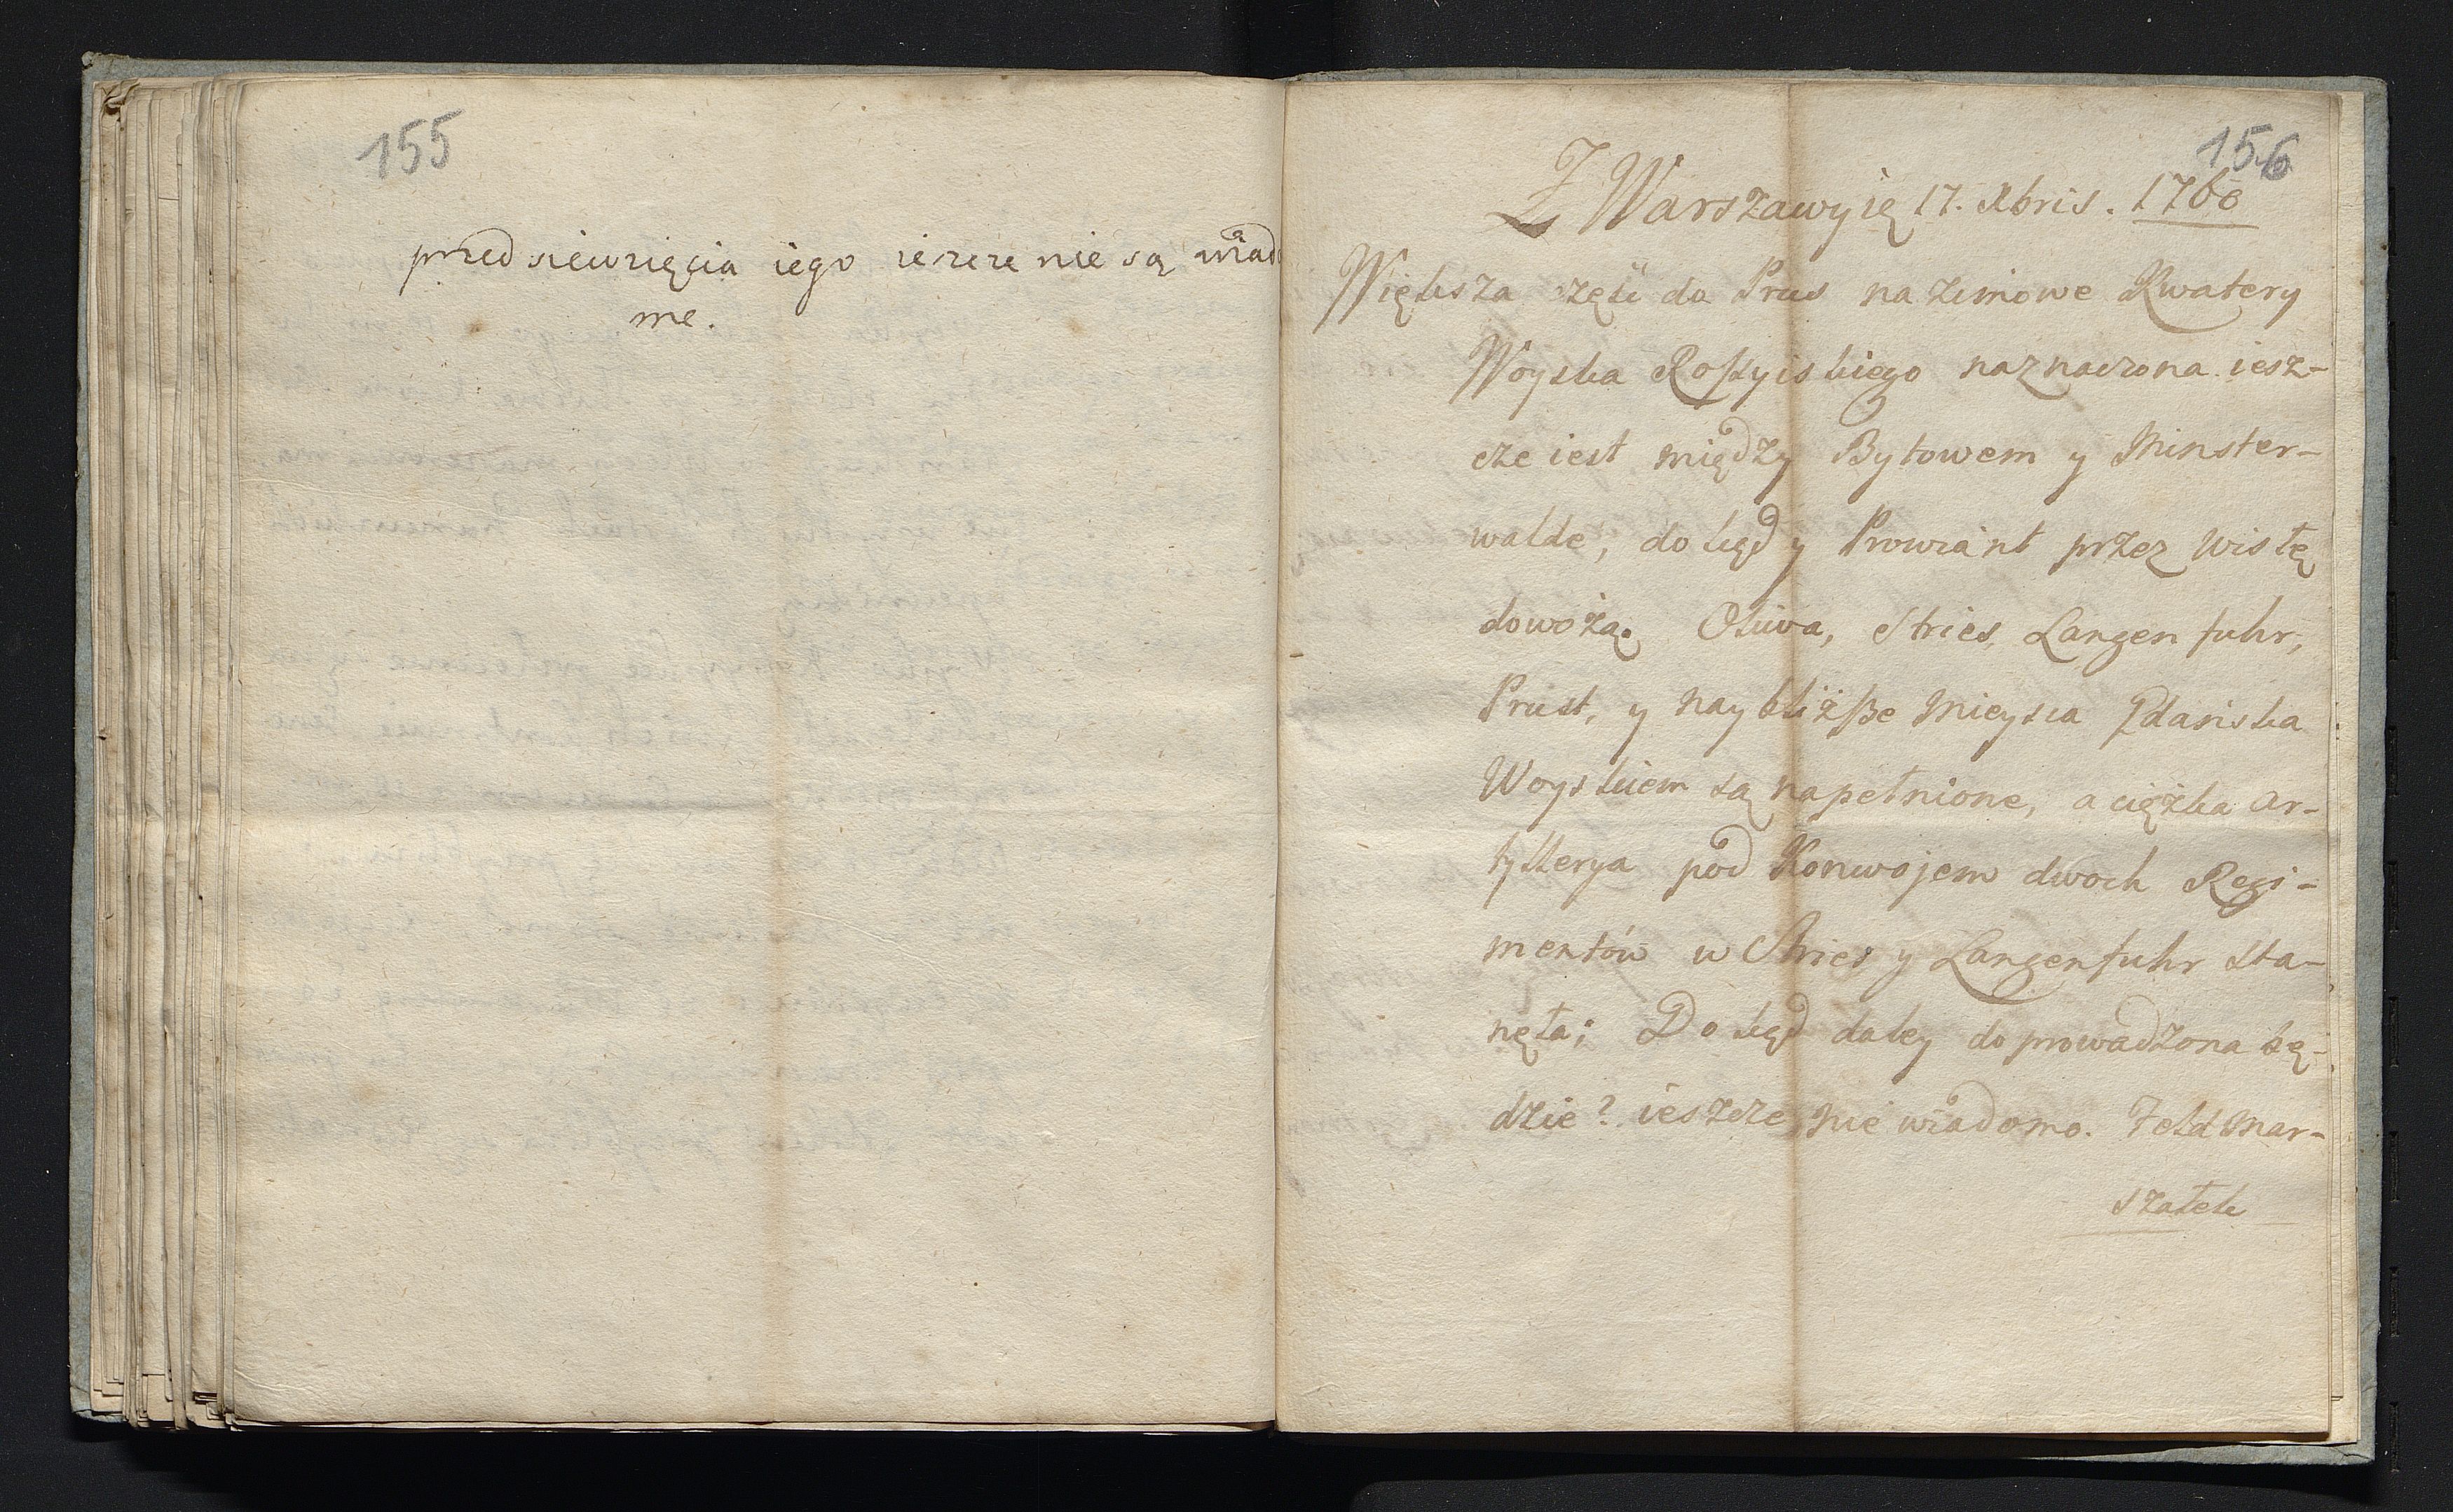 155
przedsiewzięcia iego ieszcze nie są wiado
me.
156
Z Warszawy ię 17. Xbris. 1760
Większa częśi do Prus na zimowe Kwatery
Woyska Roßyiskiego naznaczona iesz-
cze iest między Bytowem y Minster-
walde, dokąd y Prowiant przez Wisłę
dowożą. Oliwa, Stries, Langenfuhr,
Prust, y naybliżße mieysca Gdańska
Woyskiem są napełnione, a ciężka Ar-
tyllerya pod Konwojem dwoch Regi-
mentów w Stries y Langenfuhr sta-
nęła; Dokąd daley doprowadzona bę-
dzie? ieszcze nie wiadomo. Feldmar-
szałek